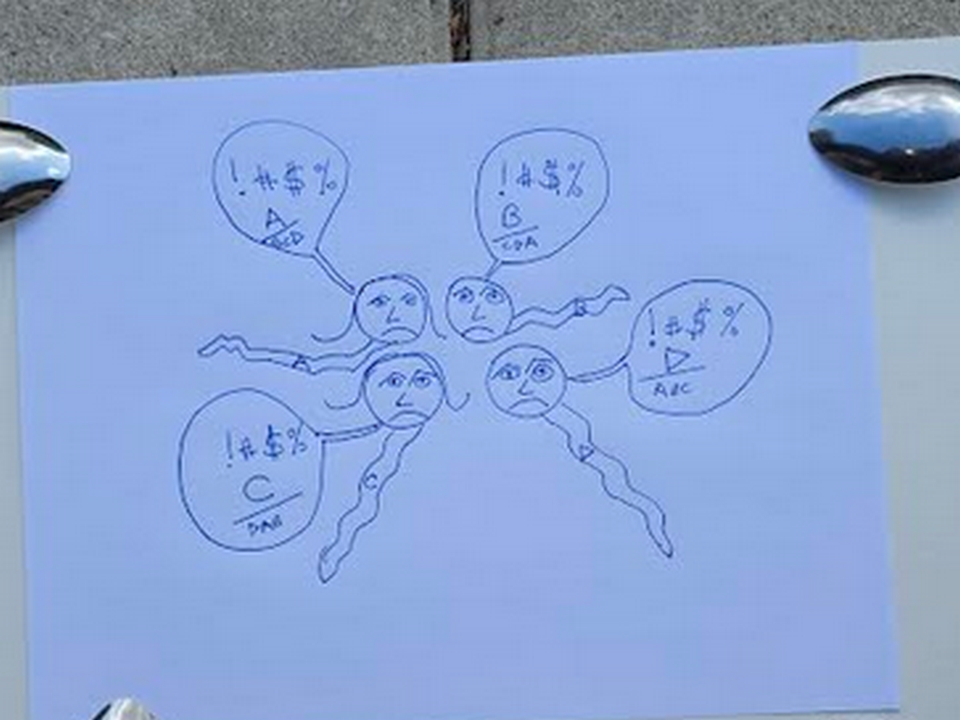 !#$%
A
BCD
!#$%
B
CDA
!#$%
D
ABC
!#$%
C
DAB
A
B
C
D